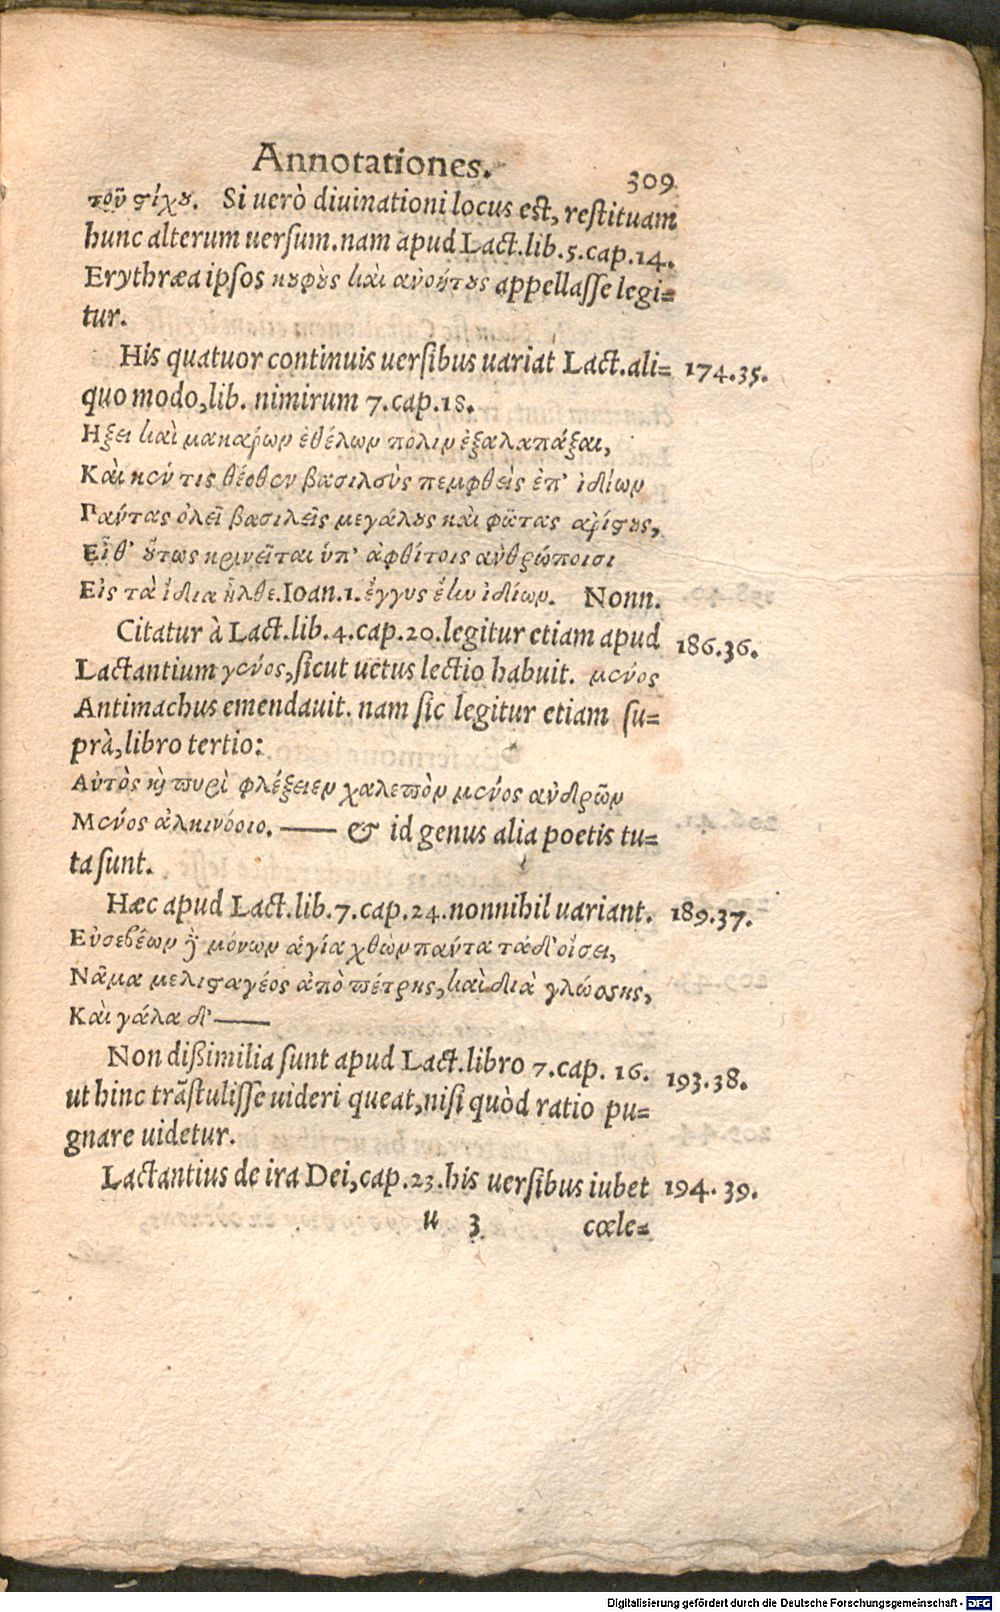 Annotationes.
309
τοῦ ϛίχȣ. Si uerò diuinationi locus est, restituam
hunc alterum uersum. nam apud Lact. lib. 5. cap. 14.
Erythræa ipsos κȣφὺς καὶ ανοήτȣς appellasse legi=
tur.
His quatuor continuis uersibus uariat Lact. ali= 174.35.
quo modo, lib. nimirum 7. cap. 18.
Ηξει καὶ μακαρ́ων ἐθέλων πόλιν ἐξαλαπάξαι,
Καὶ κέν τις θέοθεν βασιλεὺς πεμφθεὶς ἐπ' ἰδίων
Παύτας ὀλεῖ βασιλεῖς μεγάλȣς καὶ φῶτας αρ́ίϛȣς,
Εἶθ' ȣ̔́τως κρινεῖται ὑπ' ἀφθίτοις ανθρώποισι
Εἰς τὰ ἴδια ἦλθε. Ioan. 1. ἔγγυς ἔην ἰδίων. Nonn.
Citatur à Lact. lib. 4. cap. 20. legitur etiam apud 186.36.
Lactantium γένος, sicut uetus lectio habuit. μένος
Antimachus emendauit. nam sic legitur etiam su=
prà, libro tertio:
Αὐτὸς κὴ πυρὶ φλέξειεν χαλεπὸν μένος ανδρῶν
Μένος ἀλκινόοιο. —— & id genus alia poetis tu=
ta sunt.
Hæc apud Lact. lib. 7. cap. 24. nonnihil uariant. 189.37.
Εὐσεβέων ῾γ̀ μόνων ἁγία χθὼν παντα τάδ' οἴσει,
Νᾶμα μελιϛαγέος ἀπὸ πέτρης, καὶ διὰ γλώσσης,
Καὶ γάλα δ' ——
Non dißimilia sunt apud Lact. libro 7. cap. 16. 193.38.
ut hinc trãstulisse uideri queat, nisi quòd ratio pu=
gnare uidetur.
Lactantius de ira Dei, cap. 23. his uersibus iubet 194.39.
u 3 cœle=
Digitalisierung gefördert durch die Deutsche Forschungsgemeinschaft - DFG